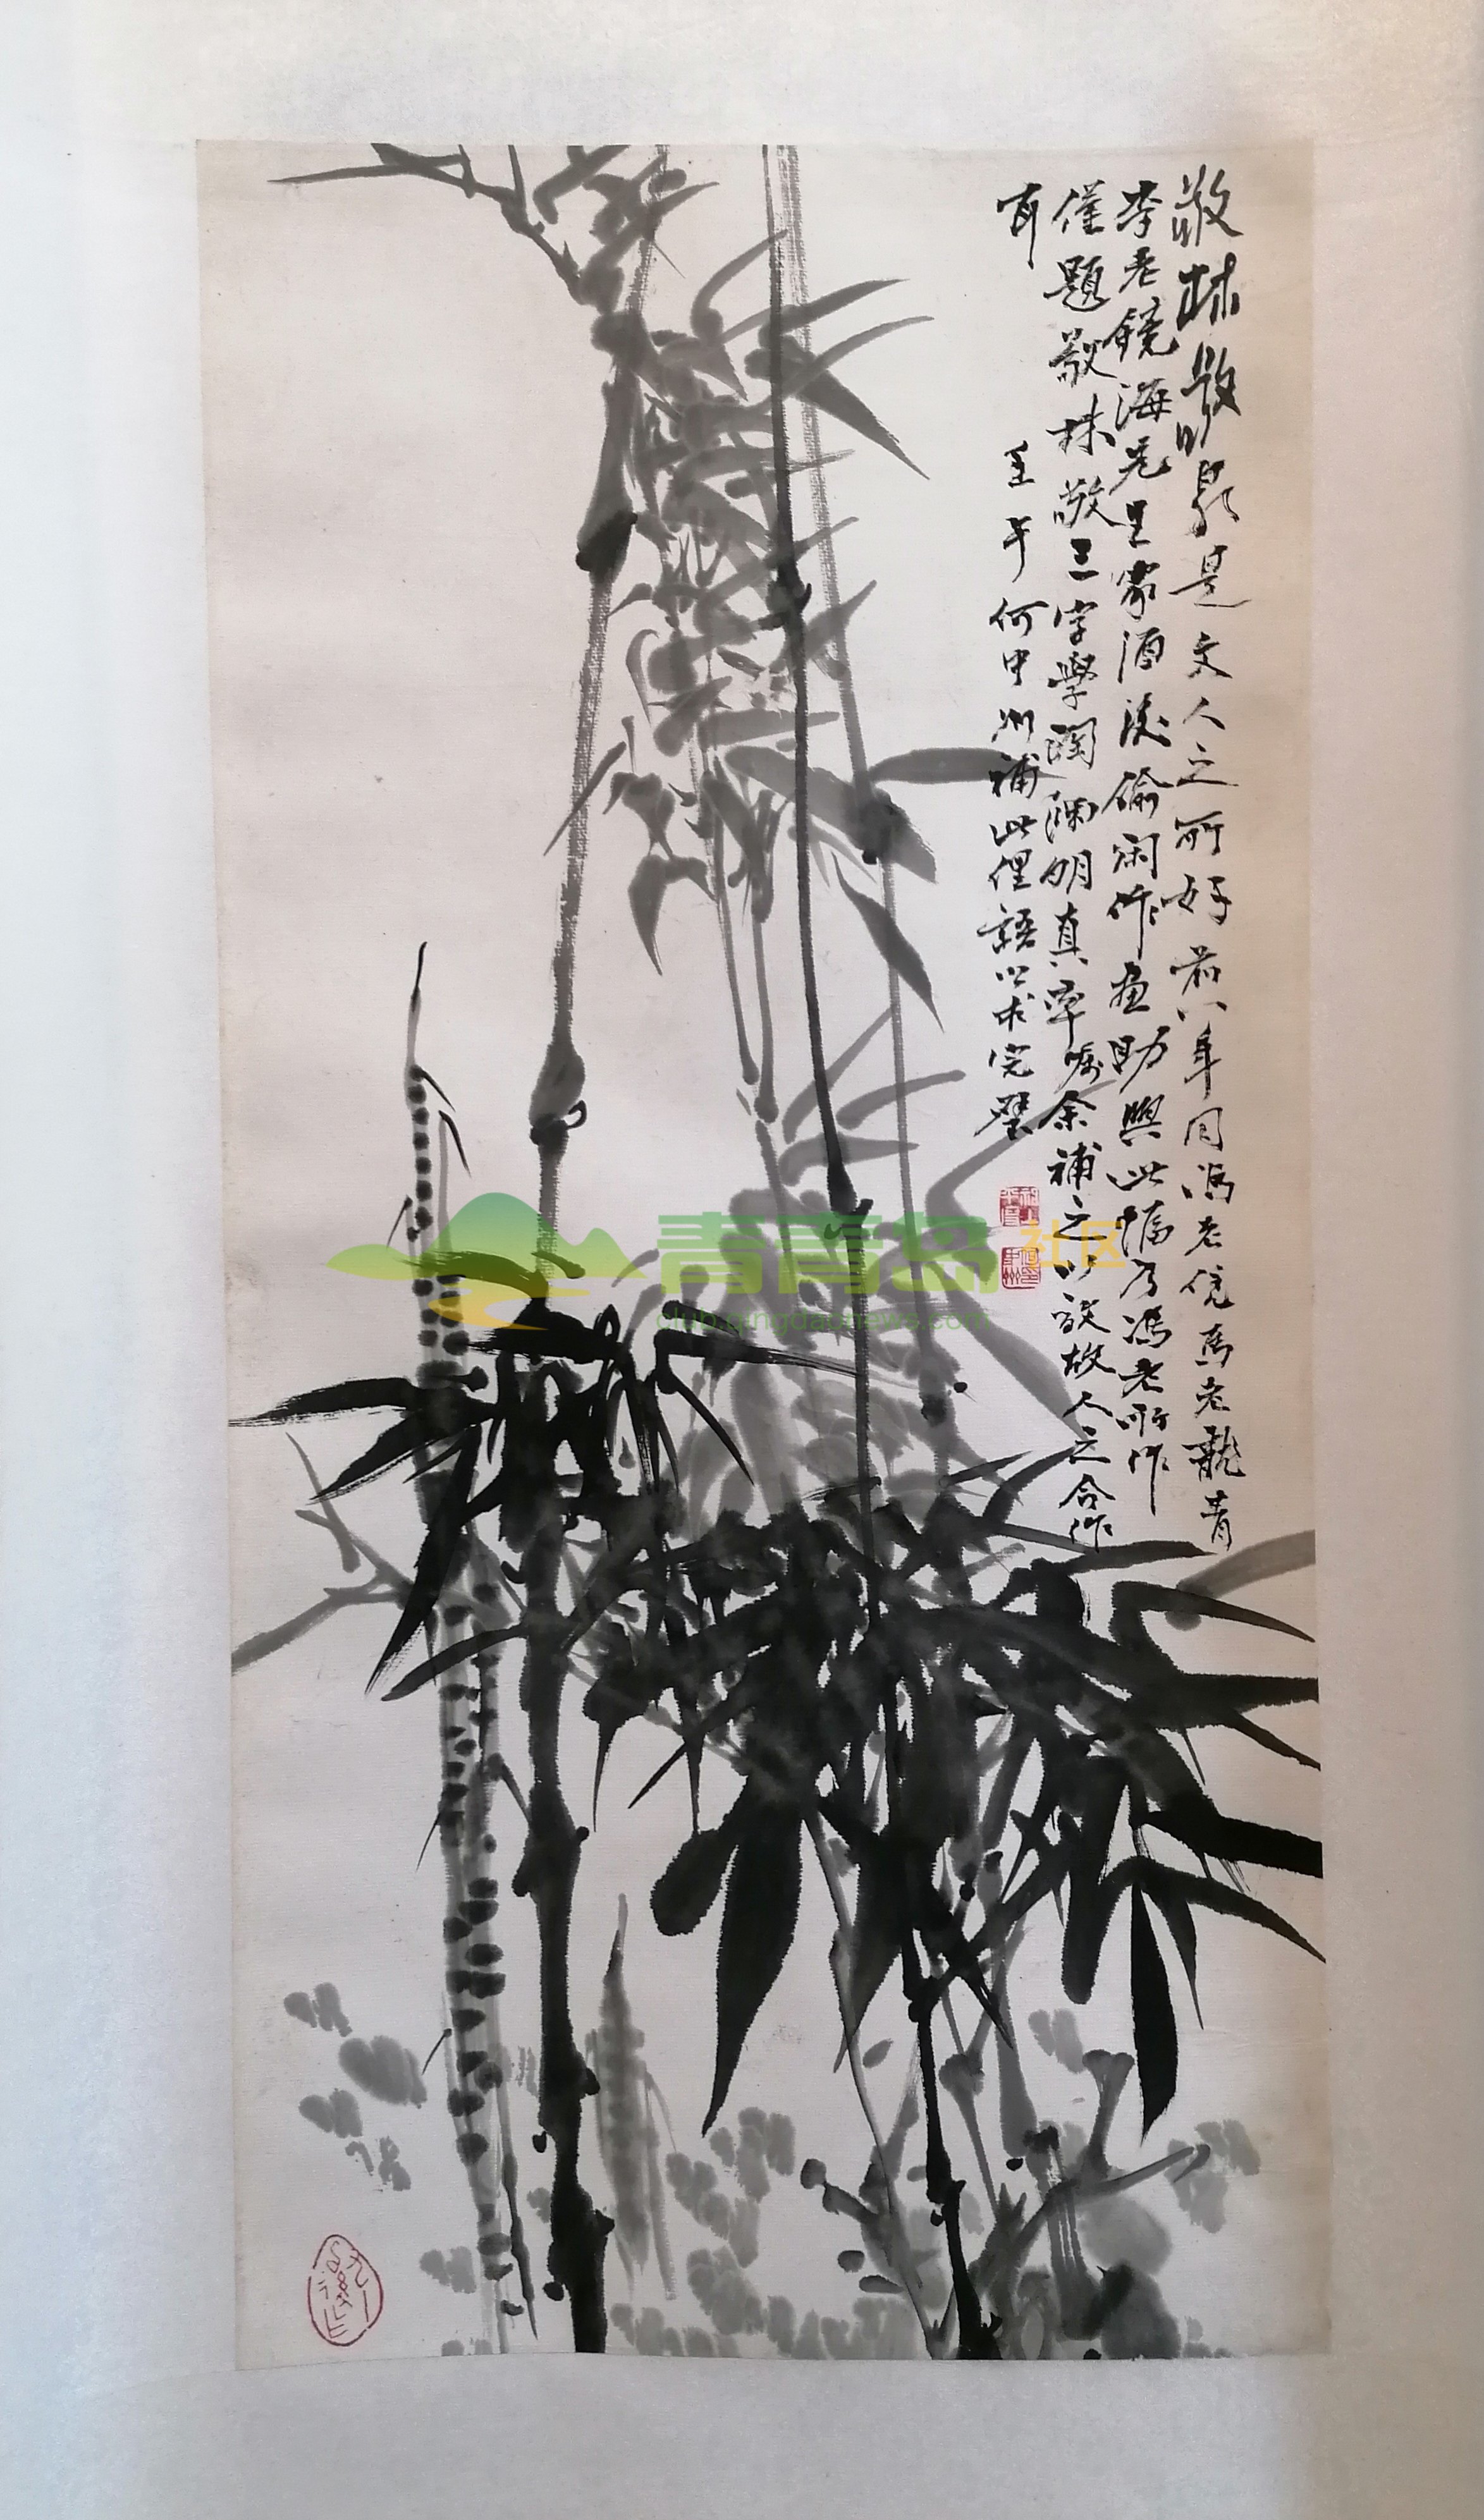 敬林敬泉是文人之所好前八年同馮老凭馬老龍青
李老鏡海先生家酒後偷闲作画助興此幅乃馮老所作
僅題敬林敬三字學陶淵明真率嘱余補之以誌故人之合作
耳
壬午何中洲補此俚語以求完璧
青青岛社区
club.qingdaonews.com